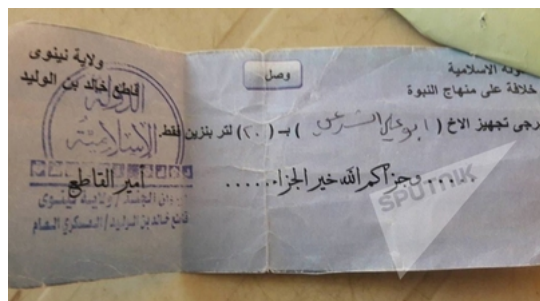 ولاية نينوى
قاطع خالد بن الوليد
وصل
ولة الاسلامية
خلافة على منهاج النبوة
رجى تجهيز الاخ ( ابو علي ) بـ ( ٢٠ ) لتر بنزين فقط.
......وجزاكم الله خير الجزاء......
أمير القاطع
الدولة
الإسلامية
ولاية نينوى
قاطع خالد بن الوليد / العسكري العام
SPUTNIK